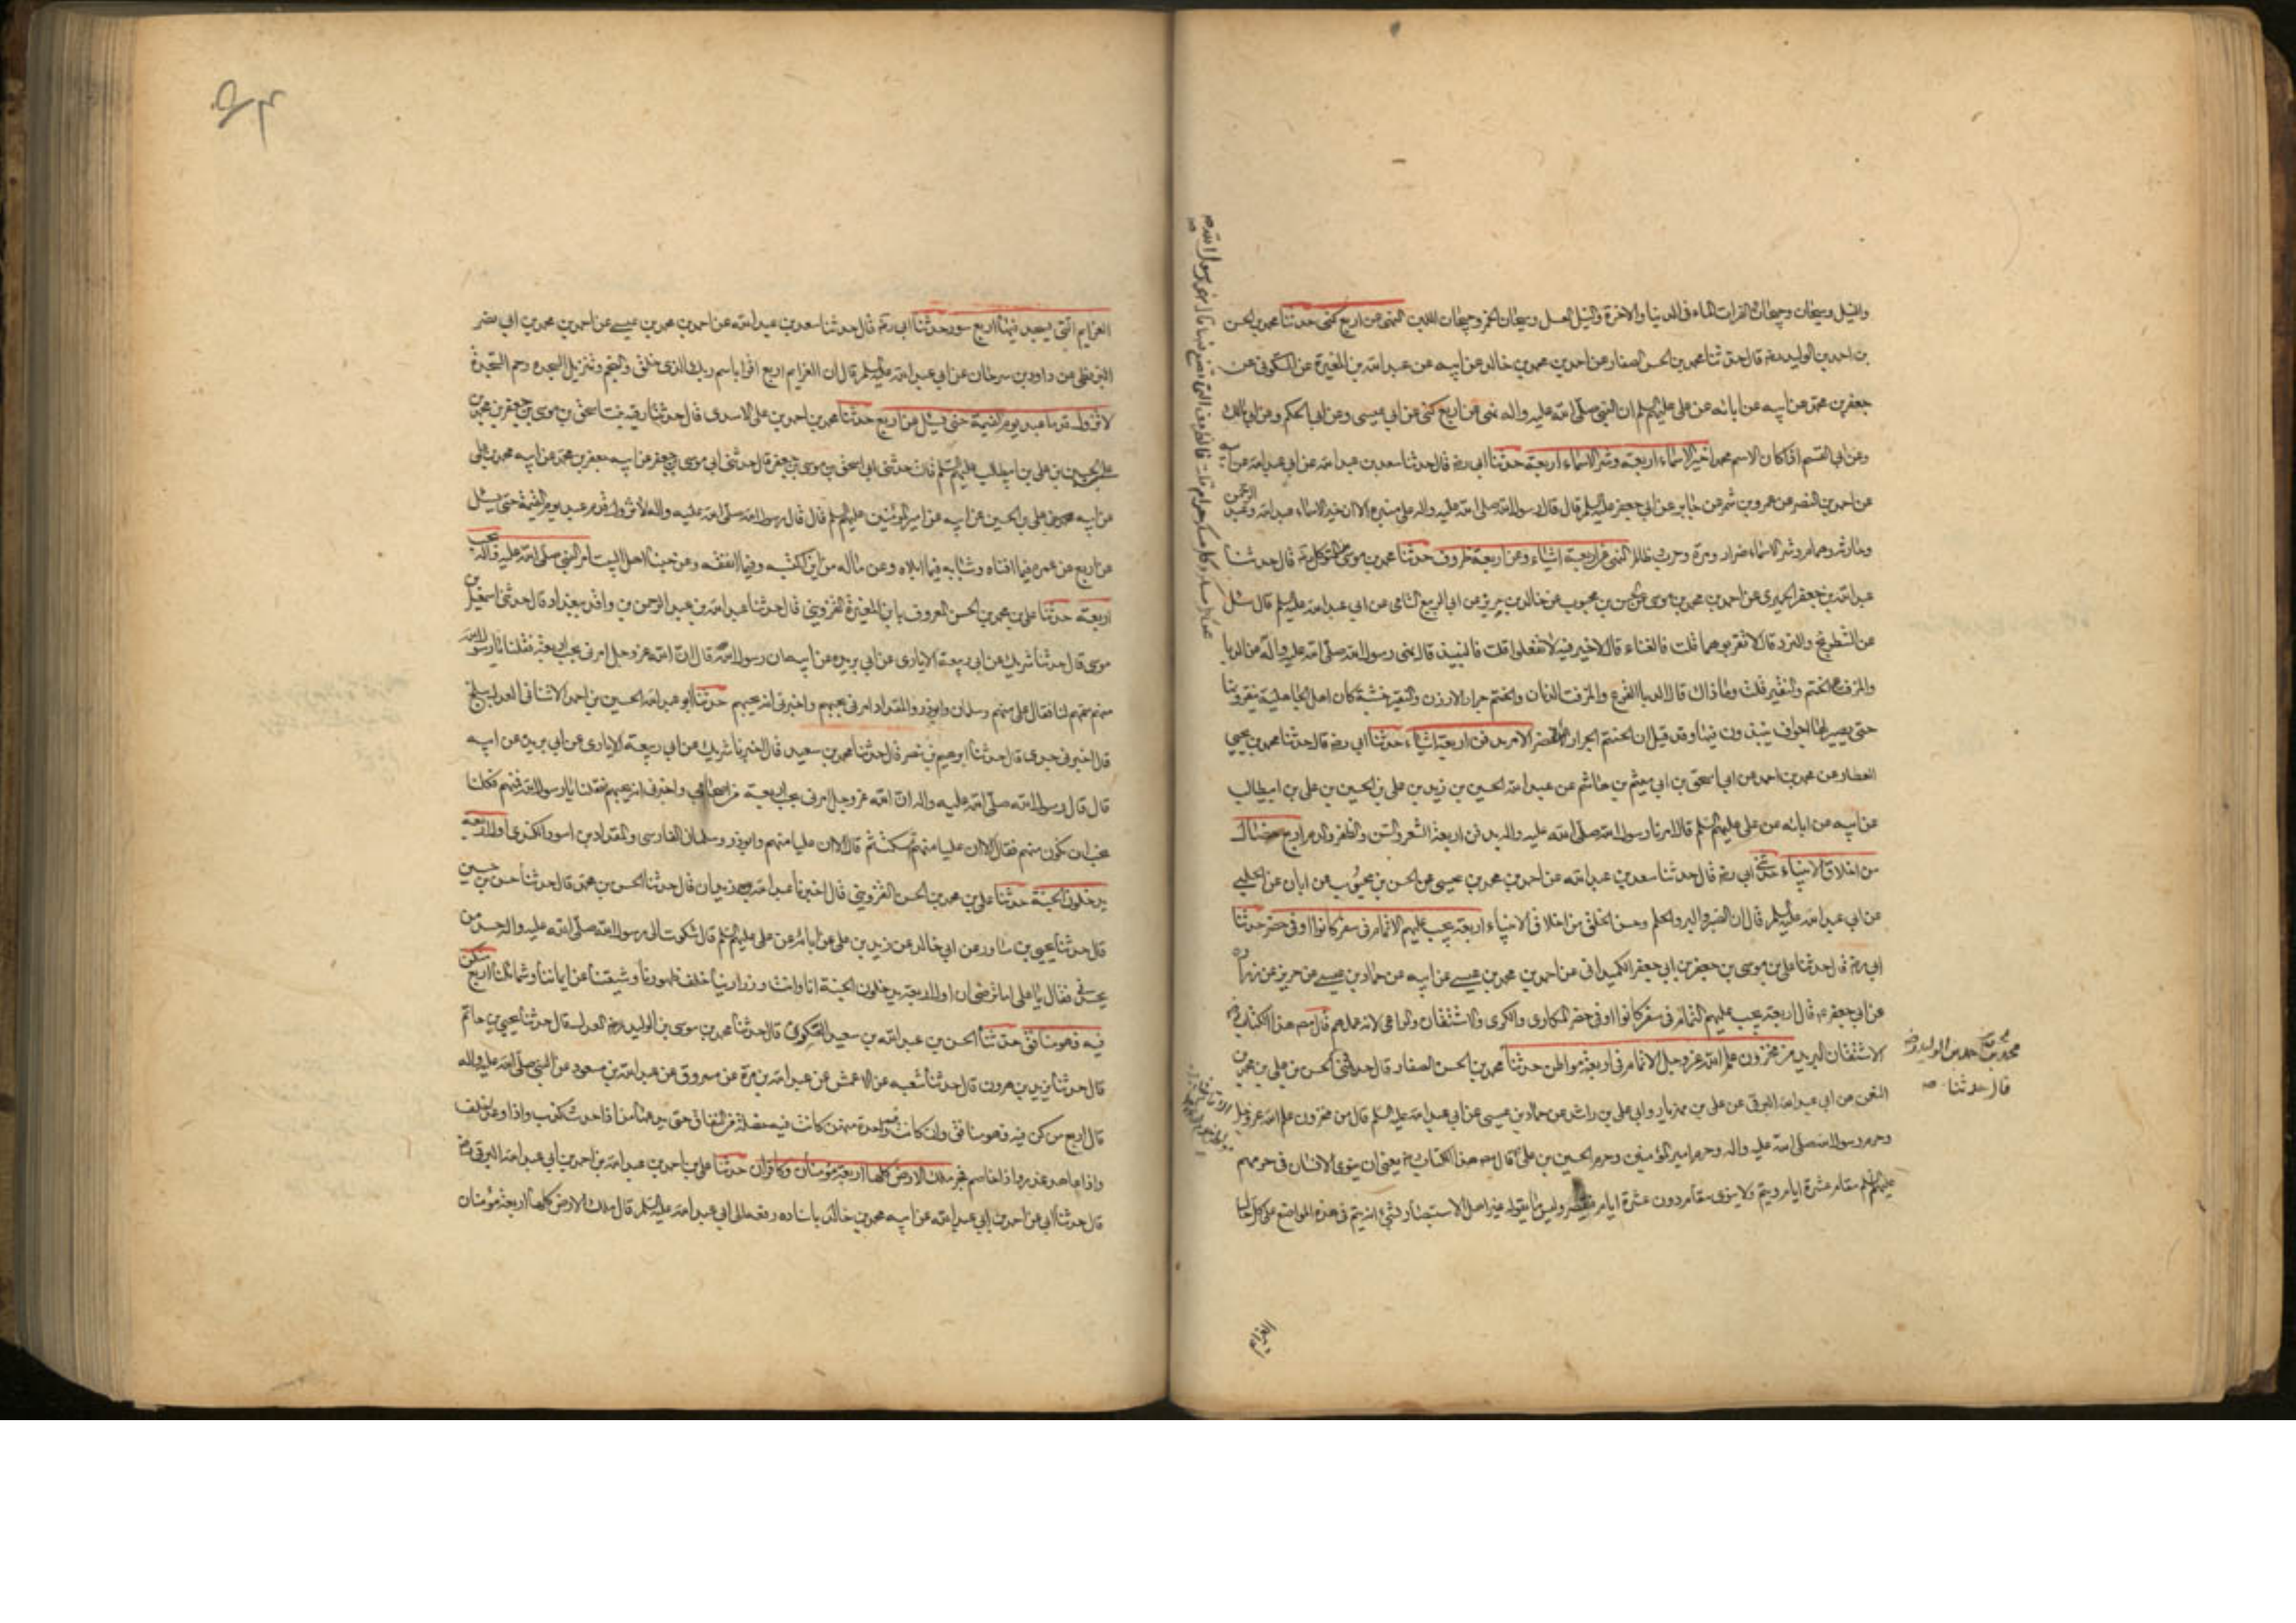 والنيل وسيحان وجيحان الفرات الماء في الدنيا والاخرة والنيل العسل وسيحان الخمر وجيحان اللبن النهي عن اربع كنى حدثنا محمد بن الحسن
بن احمد بن الوليد رضه قال حدثنا محمد بن الحسن الصفار عن احمد بن محمد بن خالد عن ابيه عن عبد الله بن المغيرة عن السكوني عن
جعفر بن محمد عن ابيه عن ابائه عن علي عليهم السلم ان النبي صلى الله عليه واله نهى عن اربع كنى عن ابي عيسى وعن ابي الحكم وعن ابي مالك
وعن ابي القسم اذا كان الاسم محمدا خير الاسماء اربعة وشر الاسماء اربعة حدثنا ابي رضه قال حدثنا سعد بن عبد الله عن ابي عبد الله عن ابيه
عن احمد بن النضر عن عمرو بن شمر عن جابر عن ابي جعفر عليه السلم قال قال رسول الله صلى الله عليه واله على منبره الا ان خير الاسماء عبد الله وعبد الرحمن
وحارثه وهمام وشر الاسماء ضرار ومرة وحرب وظالم النهي عن اربعة اشياء وعن اربعة ظروف حدثنا محمد بن موسى بن المتوكل ره قال حدثنا
عبد الله بن جعفر الحميري عن احمد بن محمد بن موسى عن الحسن بن محبوب عن خالد بن جرير عن ابي الربيع الشامي عن ابي عبد الله عليه السلم قال سئل
عن الشطرنج والنرد قال لا تقربوهما قلت فالغناء قال لا خير فيه لا تفعلوا قلت فالنبيذ قال نهى رسول الله صلى الله عليه واله عن الدبا
والمزفت والحنتم والنقير قلت وما ذاك قال الدبا القرع والمزفت الدنان والحنتم جرار الاردن والنقير خشبة كان اهل الجاهلية ينقرونها
حتى يصير لها اجواف ينبذون فيها وقد قيل ان الحنتم الجرار الخضر الامر بدفن اربعة اشياء حدثنا ابي رضه قال حدثنا محمد بن يحيى
العطار عن محمد بن احمد عن ابي اسحق بن ابي ميثم بن هاشم عن عبد الله الحسين بن زيد بن علي بن الحسين بن علي بن ابيطالب
عن ابيه عن ابائه عن علي عليهم السلم قال امرنا رسول الله صلى الله عليه واله بدفن اربعة الشعر والسن والظفر والدم اربع خصال
من اخلاق الانبياء حدثنا ابي رضه قال حدثنا سعد بن عبد الله عن احمد بن محمد بن عيسى عن الحسن بن محبوب عن ابان عن الحلبي
عن ابي عبد الله عليه السلم قال ان الصبر والبر والحلم وحسن الخلق من اخلاق الانبياء اربعة يجب عليهم الاتمام في سفر كانوا او في حضر حدثنا
ابي رضه قال حدثنا علي بن موسى بن جعفر بن ابي جعفر الكميداني عن احمد بن محمد بن عيسى عن ابيه عن حماد بن عيسى عن حريز عن زراره
عن ابي جعفر ع قال اربعة يجب عليهم التمام في سفر كانوا او في حضر المكاري والكري والاشتقان والراعي لانه عملهم قال مصنف هذا الكتاب رضه
الاشتقان البريد من مخزون علم الله عز وجل الاتمام في اربعة مواطن حدثنا محمد بن الحسن الصفار قال حدثني الحسن بن علي بن
محمد بن الحسن بن احمد بن الوليد رضه
قال حدثنا
النعمن عن ابي عبد الله البرقي عن علي بن مهزيار وابي علي بن راشد عن حماد بن عيسى عن ابي عبد الله عليه السلم قال من مخزون علم الله عز وجل
وحرم رسول الله صلى الله عليه واله وحرم امير المؤمنين وحرم الحسين بن علي قال مصنف هذا الكتاب يعني ان ينوي الانسان في حرمهم
عليهم السلم مقام عشرة ايام ويتم ولا ينوي مقام دون عشرة ايام فيقصر وليس ما يقوله غير اهل الاستبصار بشيء انه يتم في هذه المواضع على كل حال
العزايم
العزايم التي يسجد فيها اربع سور حدثنا ابي ره قال حدثنا سعد بن عبد الله عن احمد بن محمد بن عيسى عن احمد بن محمد بن ابي نصر
البزنطي عن داود بن سرحان عن ابي عبد الله عليه السلم قال ان العزايم اربع اقرا باسم ربك الذي خلق والنجم وتنزيل السجده وحم السجدة
لا تزول قدما عبد يوم القيمة حتى يسئل عن اربع حدثنا محمد بن احمد بن علي الاسدي قال حدثنا رقيه بنت اسحق بن موسى بن جعفر بن محمد بن
علي بن الحسين بن علي بن ابيطالب عليهم السلم قالت حدثني ابي اسحق بن موسى بن جعفر قال حدثني ابي موسى بن جعفر عن ابيه جعفر بن محمد عن ابيه محمد بن علي
عن ابيه علي بن الحسين عن ابيه عن امير المؤمنين عليهم السلم قال قال رسول الله صلى الله عليه واله لا تزول قدم عبد يوم القيمة حتى يسئل
عن اربع عن عمره فيما افناه وشبابه فيما ابلاه وعن ماله من اين اكتسبه وفيما انفقه وعن حبنا اهل البيت امر النبي صلى الله عليه واله بحب
اربعة حدثنا علي بن محمد بن الحسن المعروف بابن المغيرة القزويني قال حدثنا عبد الله بن عبد الرحمن بن واقد ببغداد قال حدثني اسمعيل بن
موسى قال حدثنا شريك عن ابي ربيعة الايادي عن ابي بريده عن ابيه ان رسول الله ص قال ان الله عز وجل امرني بحب اربعة فقلنا يا رسول الله
منهم سمهم لنا فقال علي منهم وسلمان وابوذر والمقداد امرني بحبهم واخبرني انه يحبهم حدثنا ابو عبد الله الحسين بن احمد الاشناني العدل ببلخ
قال اخبرني جدي قال حدثنا ابرهيم بن نصر قال حدثنا محمد بن سعيد قال اخبرنا شريك عن ابي ربيعة الايادي عن ابي بريدة عن ابيه
قال قال رسول الله صلى الله عليه واله ان الله عز وجل امرني بحب اربعة من اصحابي واخبرني انه يحبهم فقلنا يا رسول الله فمنهم فكلنا
نحب ان نكون منهم فقال الا ان عليا منهم ثم سكت ثم قال الا ان عليا منهم وابوذر وسلمان الفارسي والمقداد بن اسود الكندي اول اربعة
يدخلون الجنة حدثنا علي بن محمد بن الحسن القزويني قال اخبرنا عبد الله بن زيدان قال حدثنا الحسن بن محمد قال حدثنا حسن بن حسين
قال حدثنا يحيى بن مساور عن ابي خالد عن زيد بن علي عن ابائه عن علي عليهم السلم قال شكوت الى رسول الله صلى الله عليه واله حسد من
يحسدني فقال يا علي اما ترضى ان اول اربعة يدخلون الجنة انا وانت وذرارينا خلف ظهورنا وشيعتنا عن ايماننا وشمائلنا اربع من كن
فيه فهو منافق حدثنا الحسن بن عبد الله بن سعيد العسكري قال حدثنا محمد بن موسى بن الوليد العدل قال حدثنا يحيى بن حاتم
قال حدثنا يزيد بن هرون قال حدثنا شعبه عن الاعمش عن عبد الله بن مرة عن مسروق عن عبد الله بن مسعود عن النبي صلى الله عليه واله
قال اربع من كن فيه فهو منافق وان كانت واحدة منهن كانت فيه خصلة من النفاق حتى يدعها من اذا حدث كذب واذا وعد اخلف
واذا عاهد غدر واذا خاصم فجر ملك الارض كلها اربعة مؤمنان وكافران حدثنا علي بن احمد بن عبد الله بن احمد بن ابي عبد الله البرقي رضه
قال حدثنا ابي عن احمد بن ابي عبد الله عن ابيه محمد بن خالد باسناده رفعه الى ابي عبد الله عليه السلم قال ملك الارض كلها اربعة مؤمنان